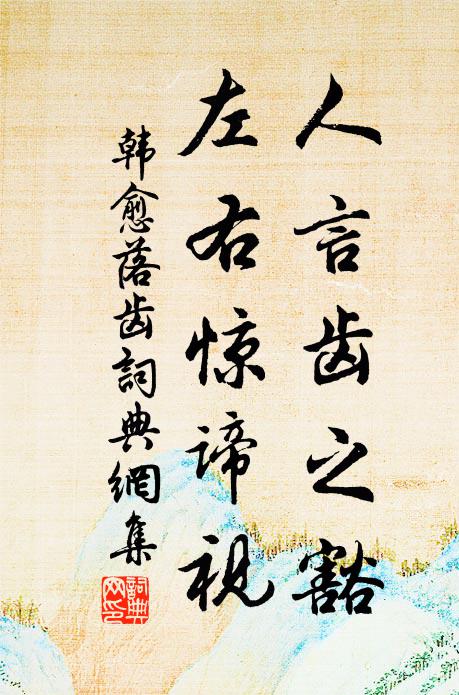 人言齿之豁
左右惊谛视
韩愈落齿詞典網集
詞典网印